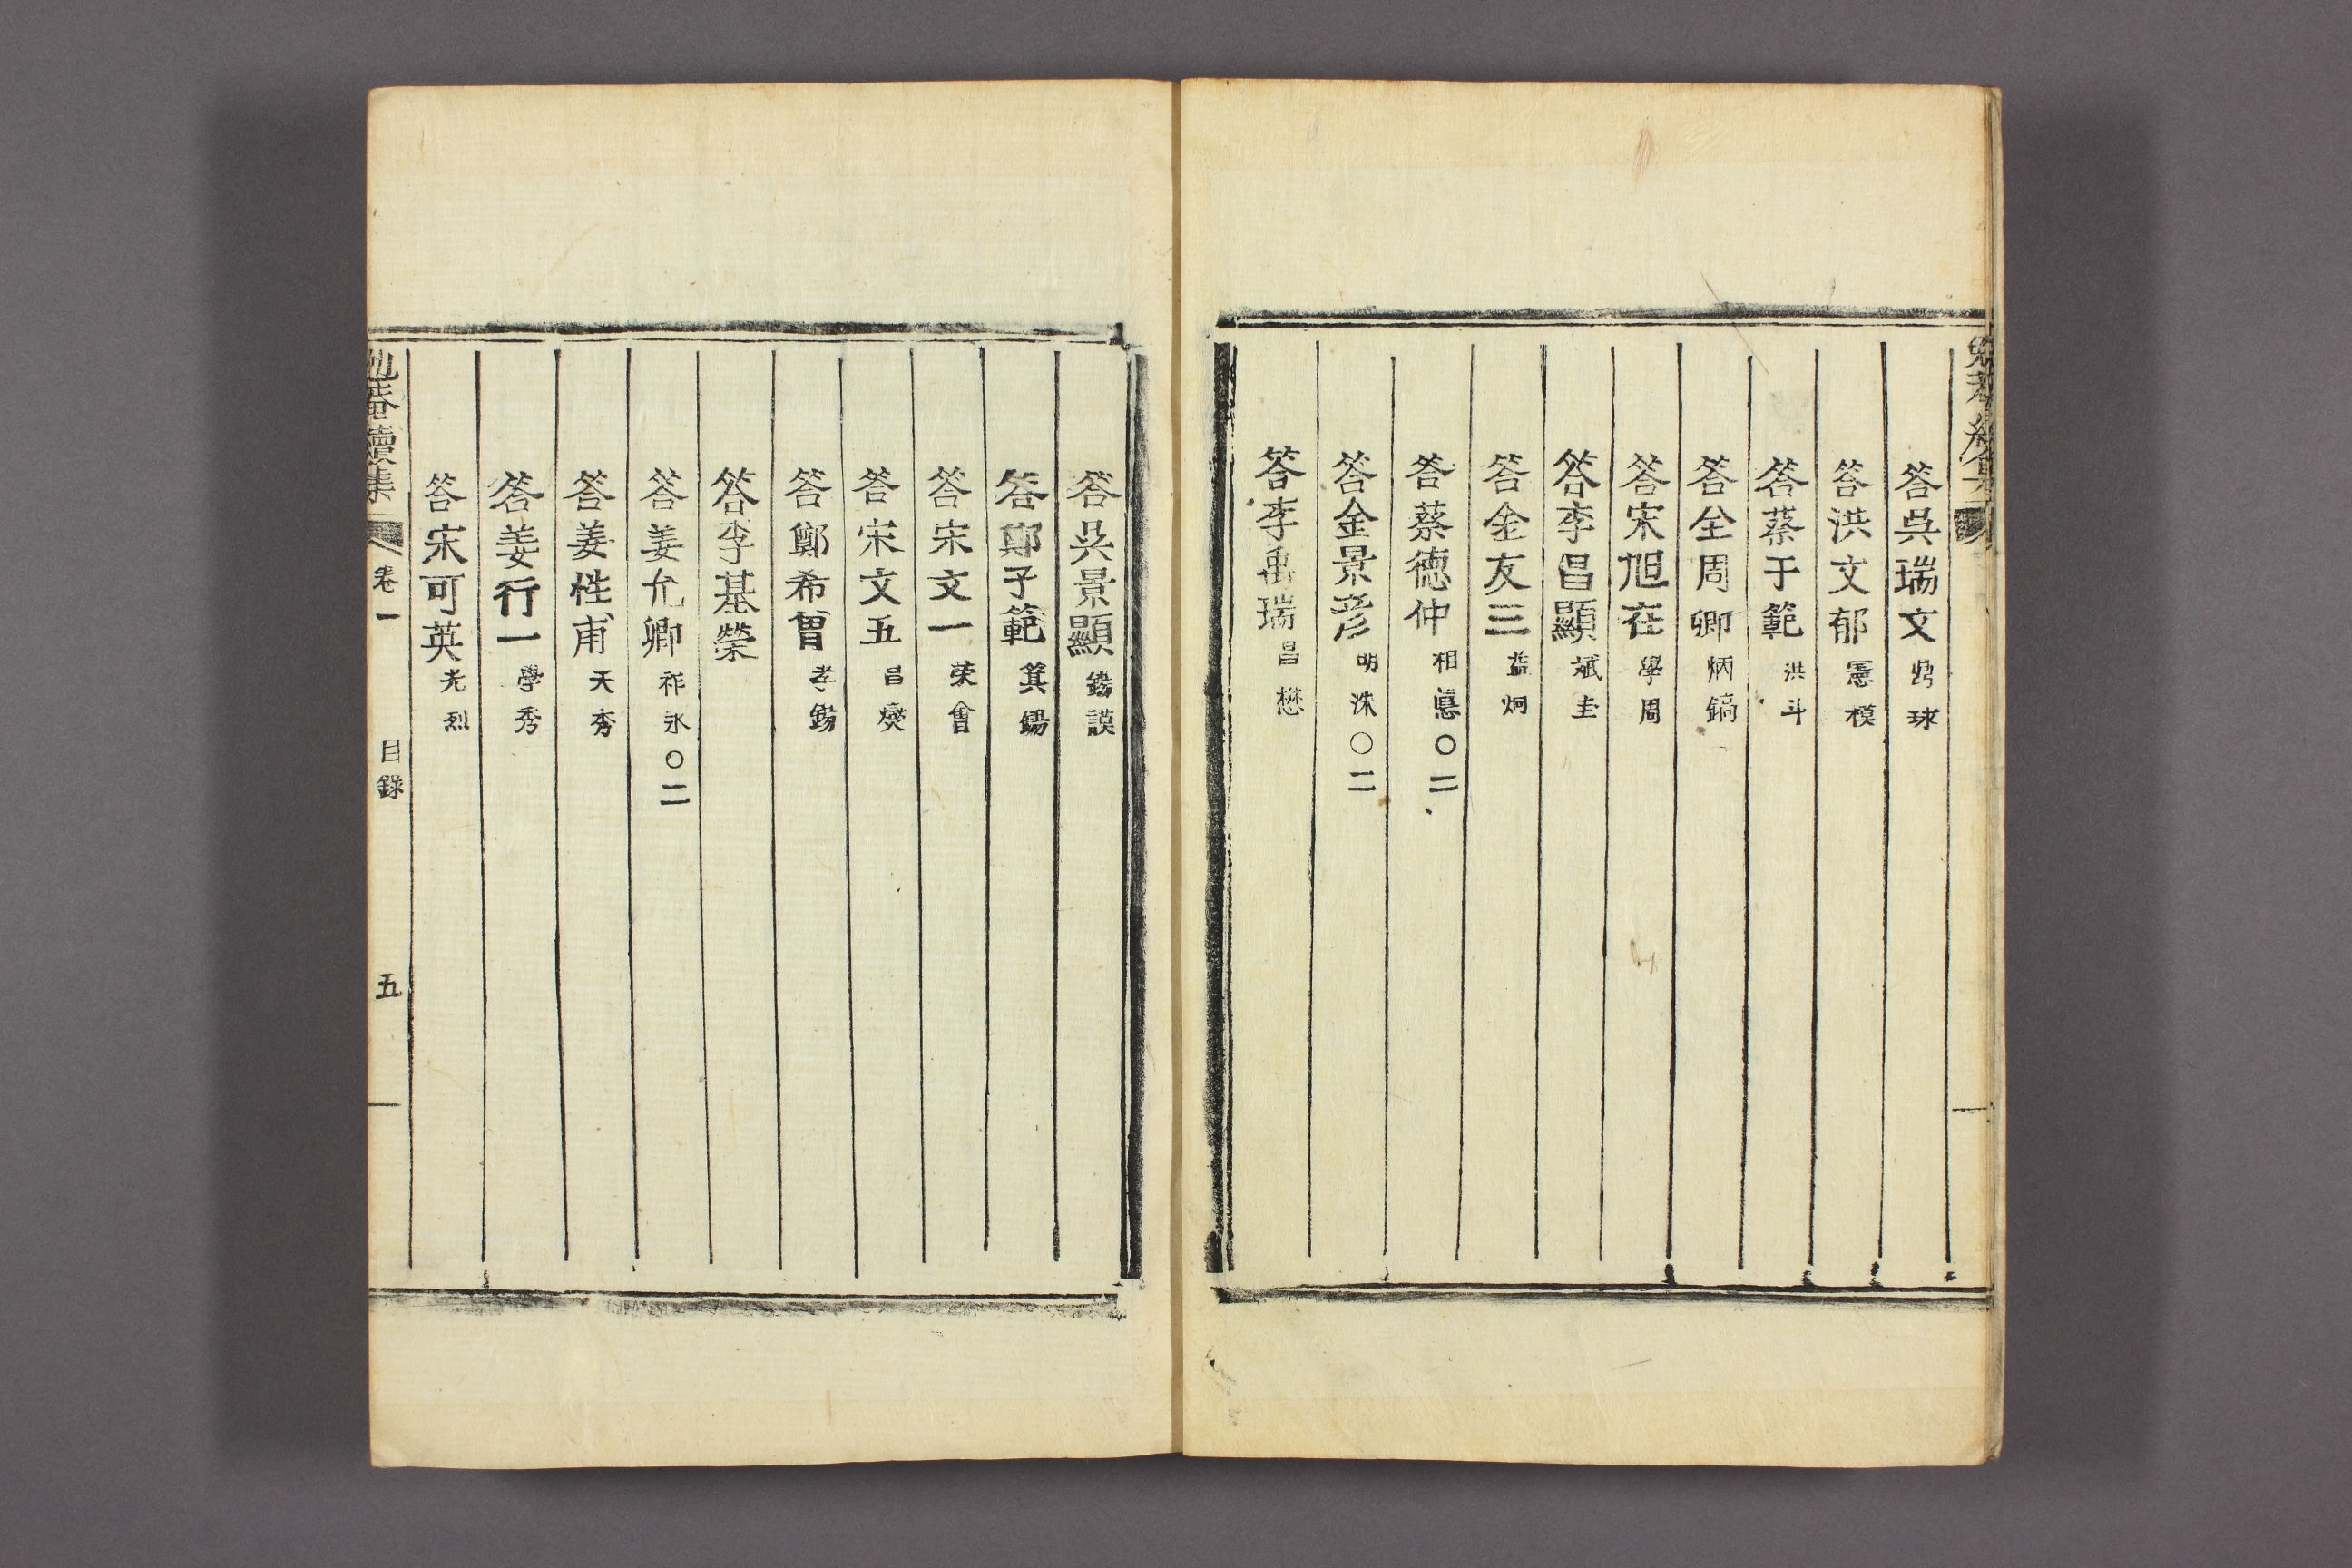 答吳瑞文 鼎球
答洪文郁 憲模
答蔡于範 洪斗
答全周卿 炳鎬
答宋旭在 學周
答李昌顯 斌圭
答金友三 益炯
答蔡德仲 相悳○二
答金景彦 明洙○二
答李禹瑞 昌懋
答吳景顯 錫謨
答鄭子範 箕錫
答宋文一 榮會
答宋文五 昌燮
答鄭希曾 孝錫
答李基榮
答姜允卿 祚永○二
答姜性甫 天秀
答姜行一 學秀
答宋可英 光烈
勉菴續集 卷一 目錄 五